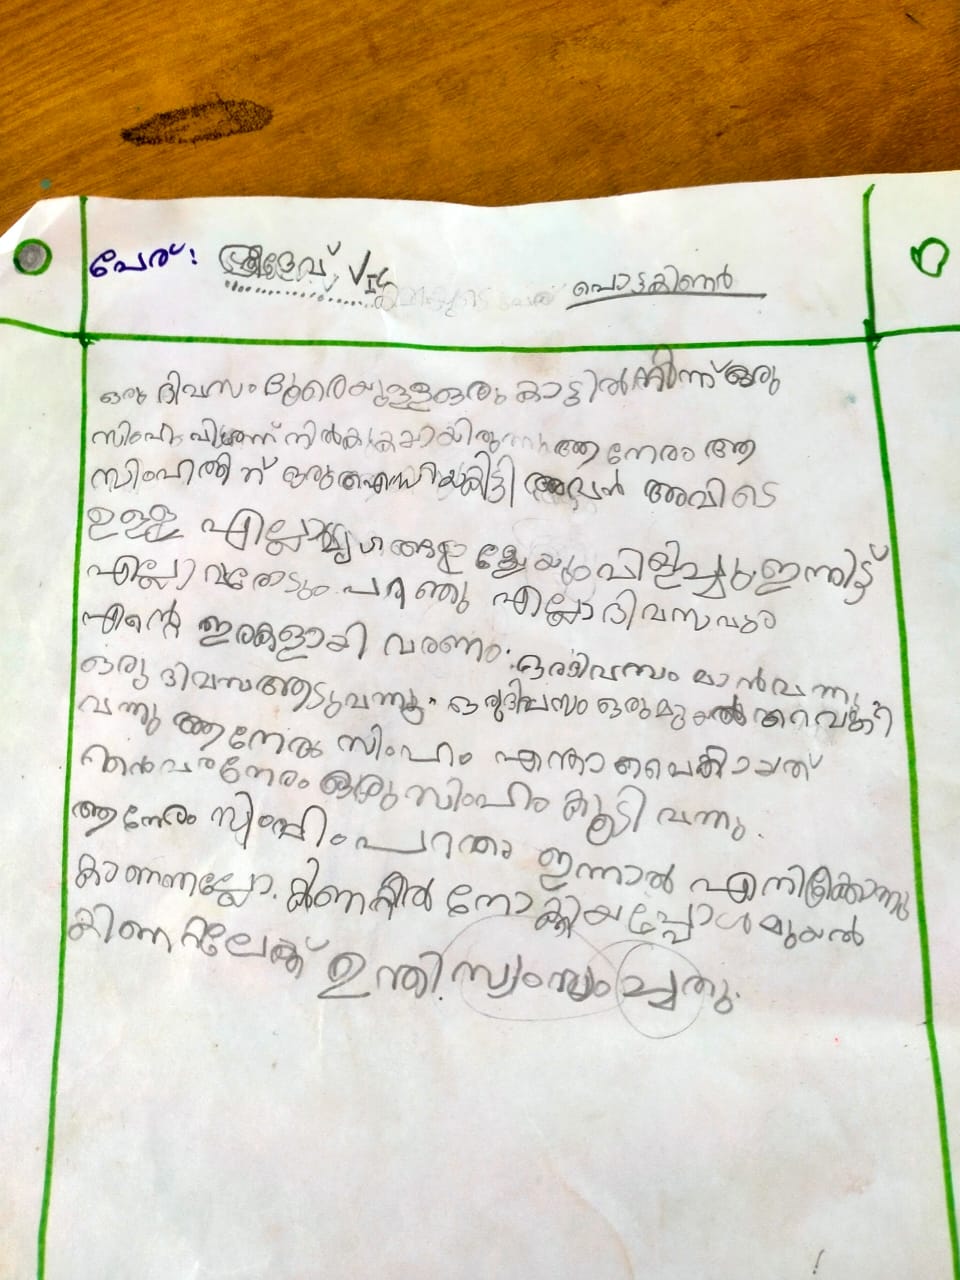 പേര്: ശ്രീദേവ് VIC
പൊട്ടകിണർ
ഒരു ദിവസം ദൂരെയുള്ള ഒരു കാട്ടിൽ നിന്ന് ഒരു
സിംഹം നിൽകുകയായിരുന്നു ആ നേരം ആ
സിംഹത്തിന് ഒരു കിട്ടി അവൻ അവിടെ
ഉള്ള എല്ലാ മൃഗങ്ങളേയും വിളിച്ചു. ഇന്നിട്ട്
എല്ലാവരോടും പറഞ്ഞു എല്ലാ ദിവസവും
എന്റെ ഇരകളായി വരണം. ഒരുദിവസം മാൻ വന്നു
ഒരു ദിവസം ആടു വന്നു. ഒരുദിവസം ഒരു മുയൽ വൈകി
വന്നു ആനേരം സിംഹം എന്താ വൈകിയത്
ഞാൻ വരുന്നേരം ഒരു സിംഹം കൂടി വന്നു.
ആനേരം സിംഹം പറഞ്ഞു ഇന്നാൽ എനിക്കൊന്നു
കാണണല്ലോ. കിണറ്റിൽ നോക്കിയപ്പോൾ മുയൽ
കിണറ്റിലേക്ക് ഉന്തി. സിംഹം ചത്തു.